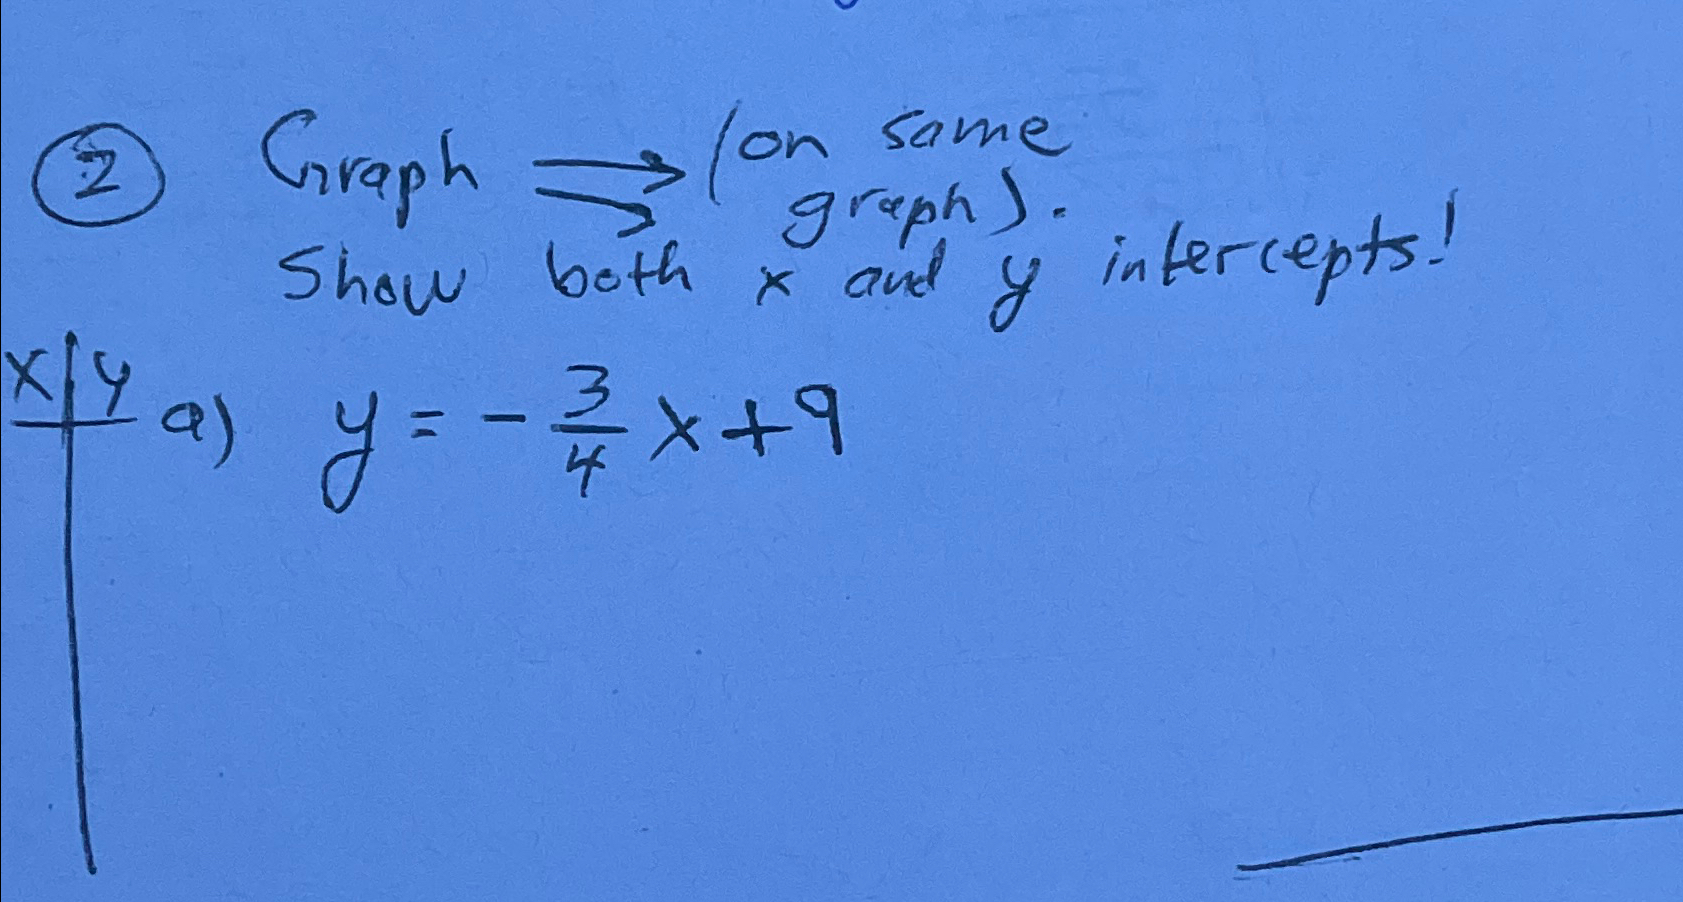 ② Graph ⇒ (on same
graph).
Show both x and y intercepts!
x | y
a) y = - 3/4 x + 9